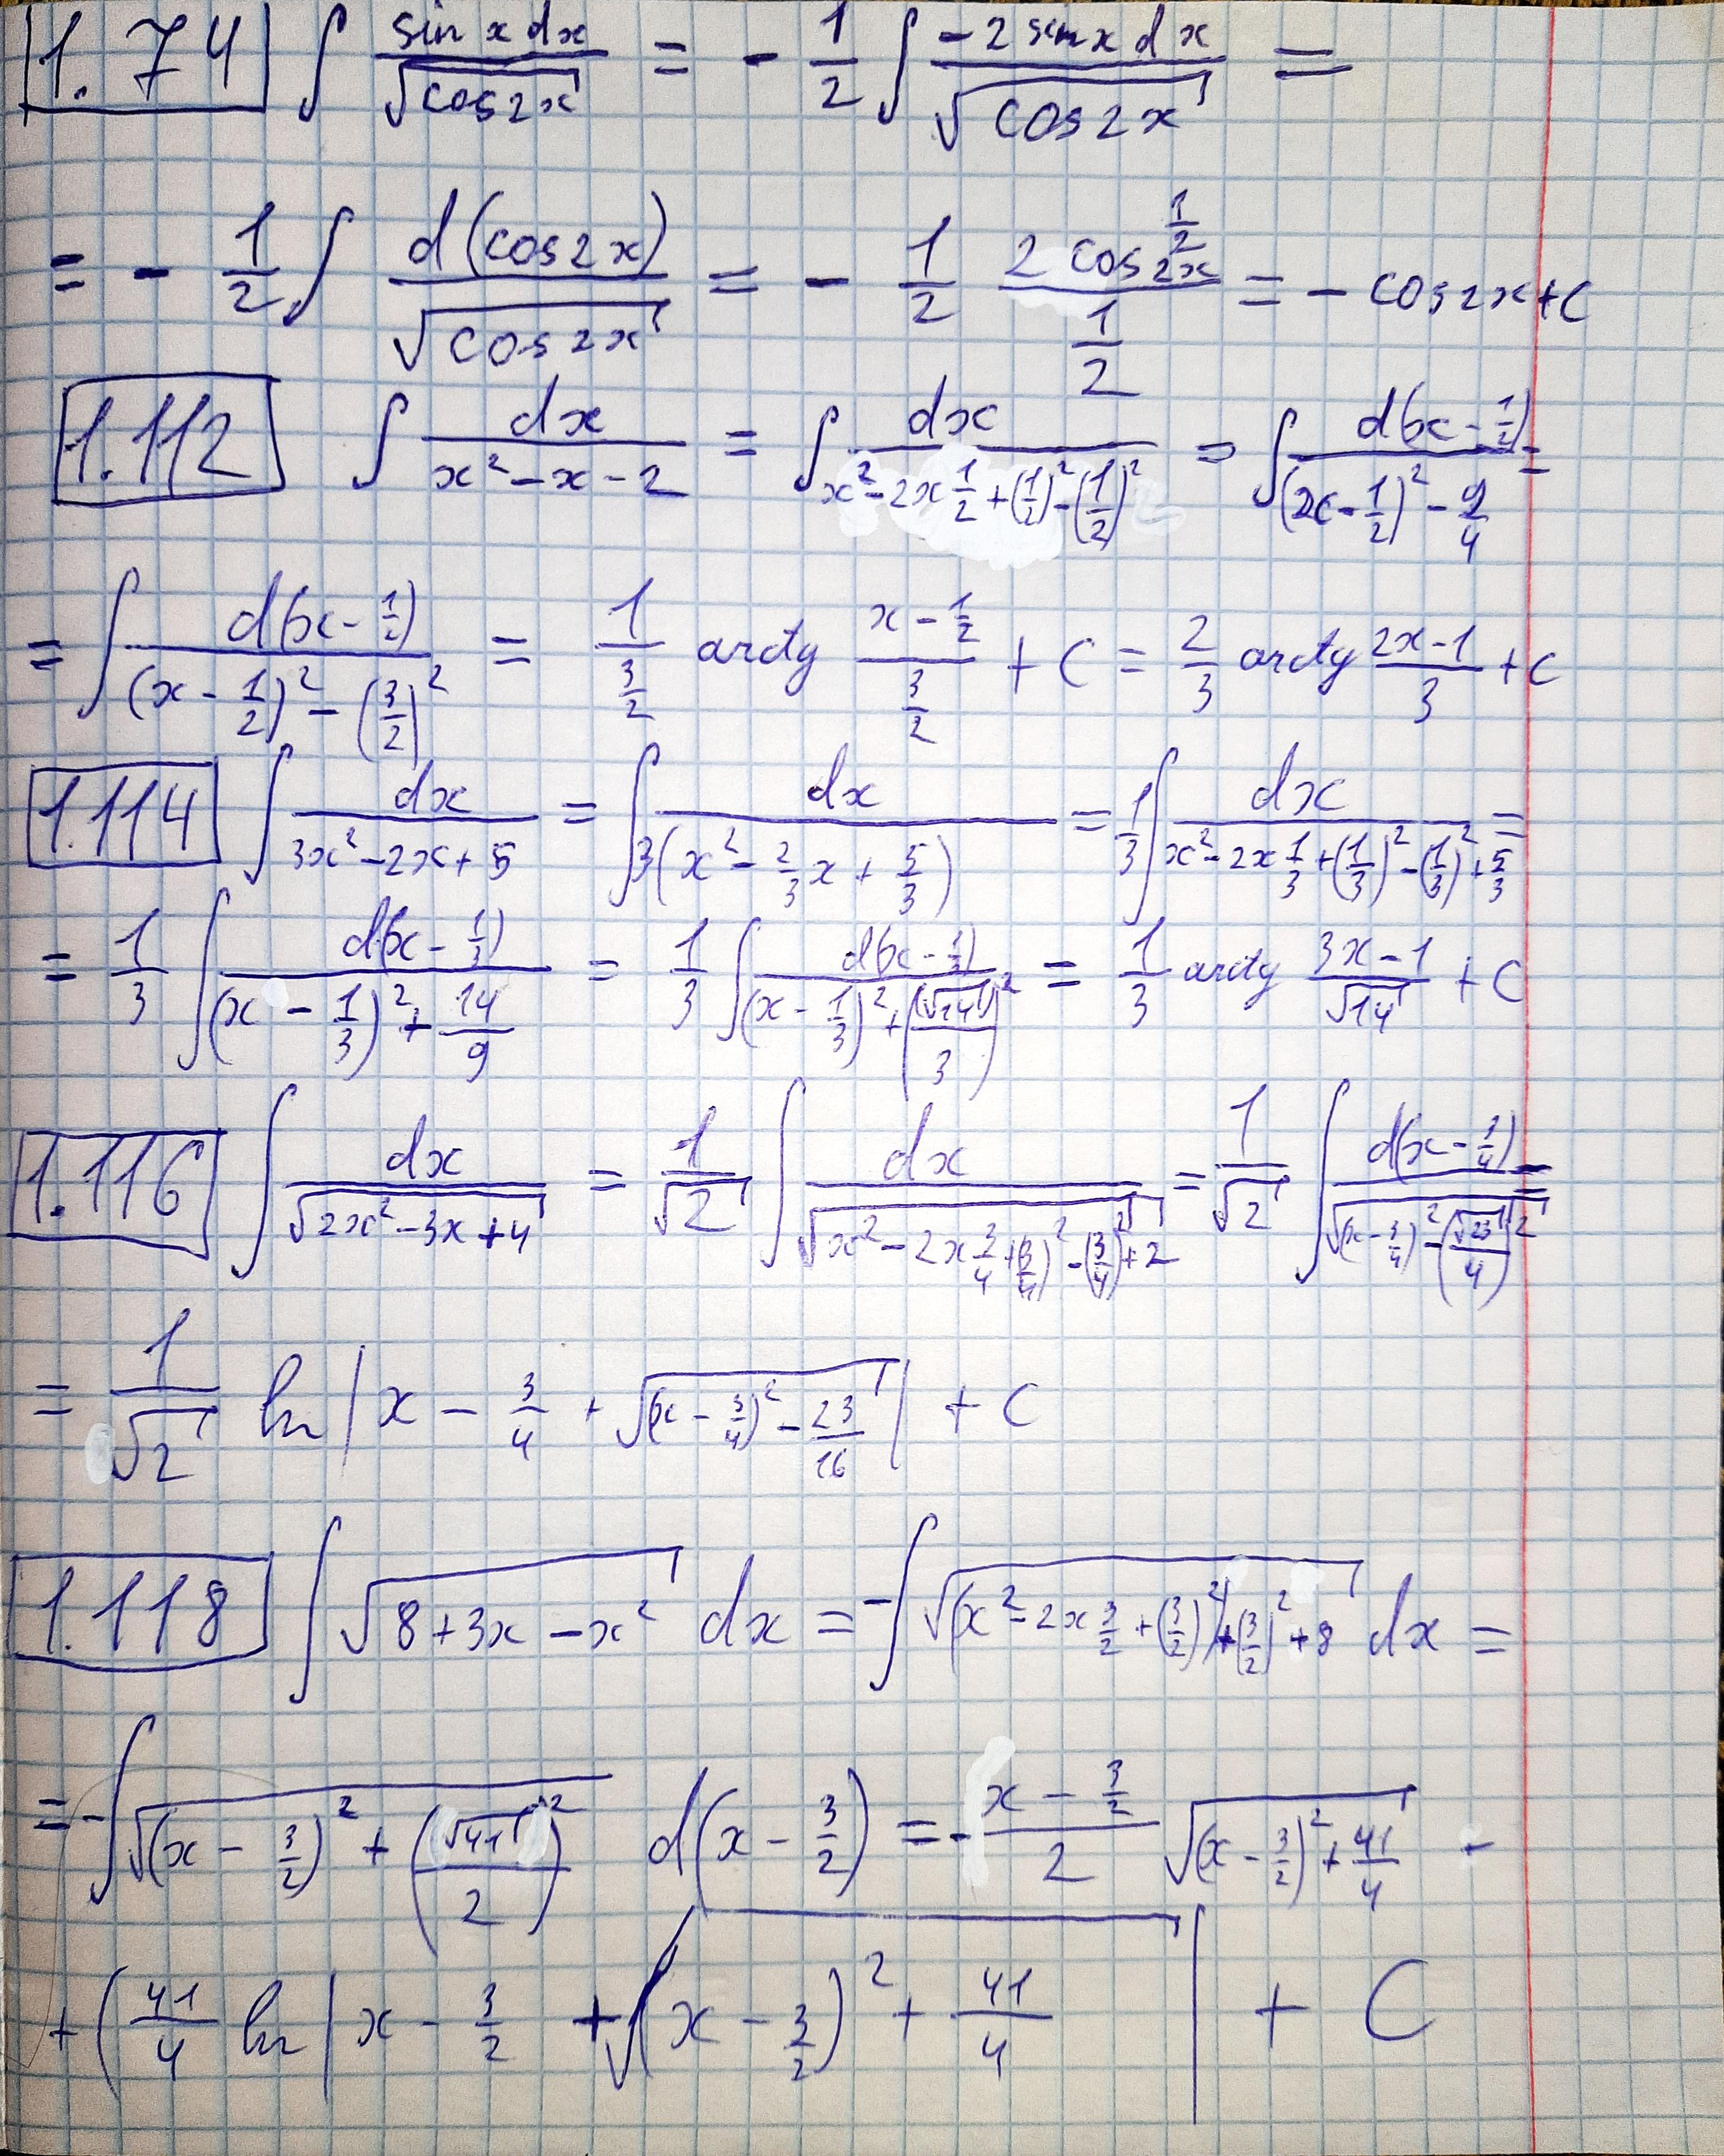 1.74 ∫ sin x dx / √(cos 2x) = - 1/2 ∫ -2 sin x dx / √(cos 2x) =
= - 1/2 ∫ d(cos 2x) / √(cos 2x) = - 1/2 (2 cos^(1/2) 2x) / (1/2) = - cos 2x + C
1.112 ∫ dx / (x² - x - 2) = ∫ dx / (x² - 2x 1/2 + (1/2)² - (1/2)²) = ∫ d(x - 1/2) / ((x - 1/2)² - 9/4) =
= ∫ d(x - 1/2) / ((x - 1/2)² - (3/2)²) = 1/(3/2) arctg (x - 1/2)/(3/2) + C = 2/3 arctg (2x - 1)/3 + C
1.114 ∫ dx / (3x² - 2x + 5) = ∫ dx / 3(x² - 2/3 x + 5/3) = 1/3 ∫ dx / (x² - 2x 1/3 + (1/3)² - (1/3)² + 5/3) =
= 1/3 ∫ d(x - 1/3) / ((x - 1/3)² + 14/9) = 1/3 ∫ d(x - 1/3) / ((x - 1/3)² + (√14/3)²) = 1/3 arctg (3x - 1)/√14 + C
1.116 ∫ dx / √(2x² - 3x + 4) = 1/√2 ∫ dx / √(x² - 2x 3/4 + (3/4)² - (3/4)² + 2) = 1/√2 ∫ d(x - 3/4) / √((x - 3/4)² - (√23/4)²) =
= 1/√2 ln | x - 3/4 + √((x - 3/4)² - 23/16) | + C
1.118 ∫ √(8 + 3x - x²) dx = - ∫ √((x² - 2x 3/2 + (3/2)²) + (3/2)² + 8) dx =
= - ∫ √((x - 3/2)² + (√41/2)²) d(x - 3/2) = - (x - 3/2)/2 √((x - 3/2)² + 41/4) -
+ (41/4 ln | x - 3/2 + √((x - 3/2)² + 41/4) | + C